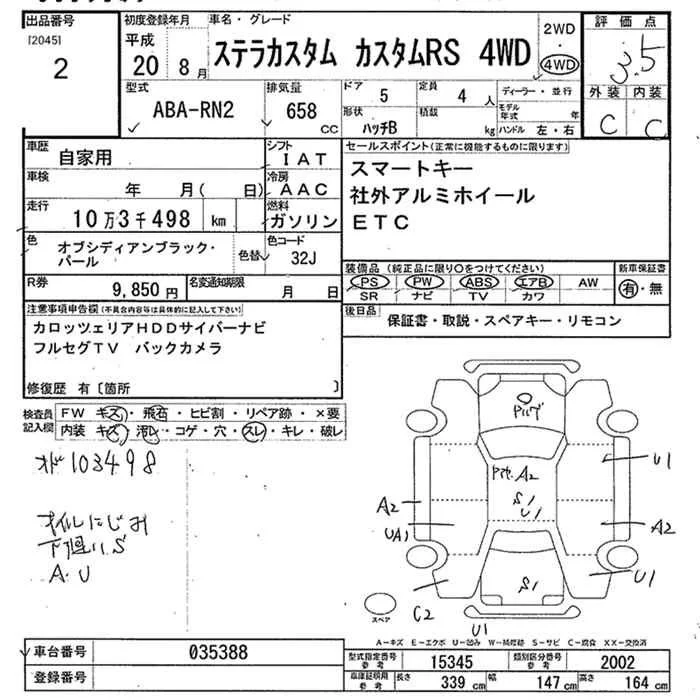 出品番号 初度登録年月 車名・グレード 評価点
[2045] 平成 ステラカスタム カスタムRS 4WD 2WD・4WD 3.5
2 20 8月
型式 排気量 ドア 定員 ディーラー・並行 外装 内装
ABA-RN2 658 CC 5 4人 モデル年式 年 C C
形状 積載 ハンドル 左・右
ハッチB kg
車歴 自家用 シフト IAT セールスポイント(正常に機能するものに限ります)
車検 年 月( 日) 冷房 AAC スマートキー
走行 10万3千498 km 燃料 ガソリン 社外アルミホイール
ETC
色 オブシディアンブラック・パール 色替 色コード 32J
装備品(純正品に限り○をつけてください) 新車保証書
PS PW ABS エアB AW 有・無
SR ナビ TV カワ
R券 9,850円 名変通知期限 月 日
後日品 保証書・取説・スペアキー・リモコン
注意事項申告欄(不具合内容等は具体的に記入して下さい)
カロッツェリアHDDサイバーナビ
フルセグTV バックカメラ
修復歴 有〔箇所 〕
検査員記入欄 FW キズ・飛石・ヒビ割・リペア跡・×要
内装 キズ・汚レ・コゲ・穴・スレ・キレ・破レ
オド103498
オイルにじみ
下廻りS
A.U
A2
S1
U1
U1
A2
UA1
A2
S1
U1
C2
U1
スペア
A−キズ E−エクボ U−凹み W−補修跡 S−サビ C−腐食 XX−交換済
車台番号 035388
登録番号
型式指定番号 参考 15345 類別区分番号 参考 2002
車庫証明用 参考 長さ 339cm 幅 147cm 高さ 164cm